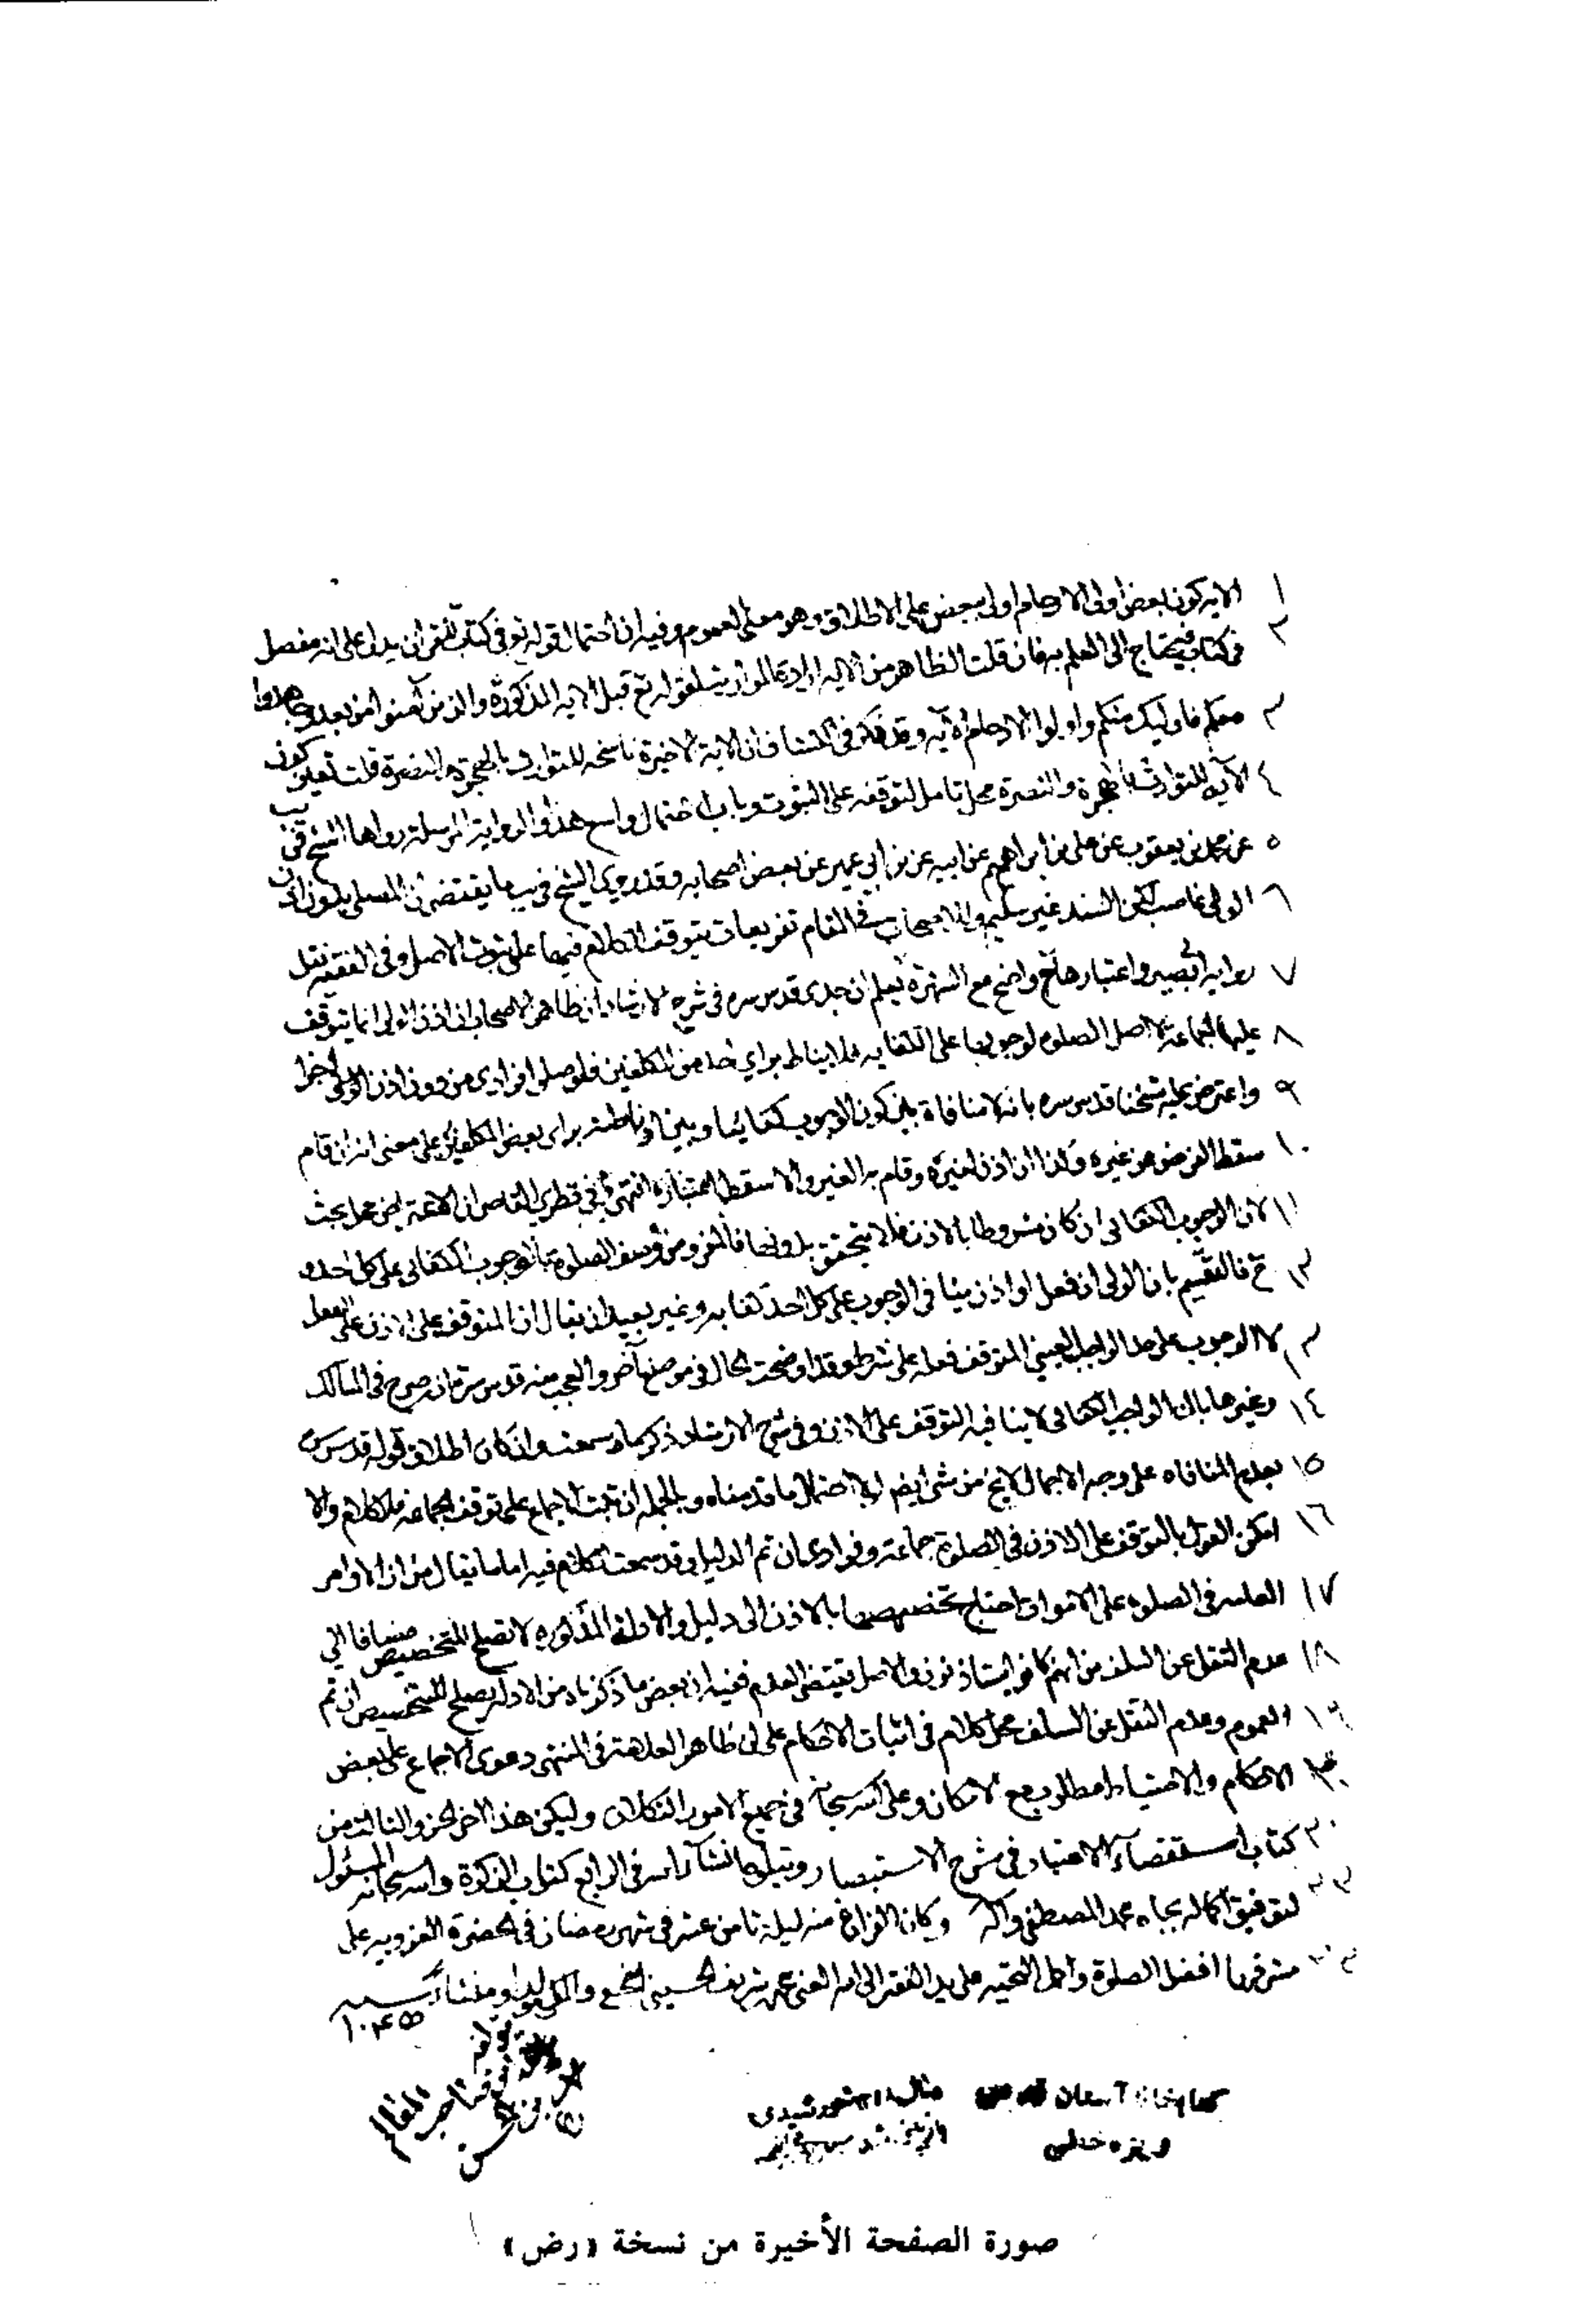 ١ الايه كون بعض اولى الارحام اولى ببعض على الاطلاق وهو معنى العموم وفيه ان احتمال قوله تع في كتاب القرآن يدل على انه مفصل
٢ في كتابه فيحتاج الى العلم به فان قلت الظاهر من الايه ارادة الموارثه لقوله تع قبل الايه المذكورة والذين آمنوا من بعد وجاهدوا
٣ معكم فاوليك منكم واولوا الارحام الآيه وقد ذكر في الكشاف ان الاية الاخيرة ناسخه للتوارث بالهجرة والنصرة قلت تعين كون
٤ الآيه للتوارث بالهجرة والنصرة محل تامل لتوقفه على الثبوت وباب الاحتمال واسع هذا والرواية المرسلة رواها الشيخ في يب
٥ عن محمد بن يعقوب عن على بن ابراهيم عن ابيه عن بن ابي عمير عن بعض اصحابه وقد روى الشيخ في يب ما يقتضي ان المصلي بدون اذن
٦ الولي غاصب لكن السند غير سليم وللاصحاب في المقام تفريعات يتوقف الكلام فيها على ثبوت الاصل وفي الفقيه نقل
٧ رواية ابي بصير واعتبارها واضح مع الشهرة ثم اعلم ان جدى قدس سره في شرح الارشاد ان ظاهر الاصحاب ان اذن الولي انما يتوقف
٨ عليها الجماعة لا اصل الصلوة لوجوبها على الكفايه فلا يناط براي احد من المكلفين فلو صلوا فرادى من دون اذن الولي اجزا
٩ واعترض عليه شيخنا قدس سره بانه لا منافاة بين كون الوجوب كفائيا وبين اناطته براى بعض المكلفين على معنى انه ان قام
١٠ سقط الفرض عن غيره وكذا ان اذن لغيره وقام به الغير والا سقط اعتباره انتهى وفي نظري القاصر ان الاعتراض محل بحث
١١ لان الوجوب الكفائى ان كان مشروطا بالاذن فلا يتحقق بدونها فالفرض من وصف الصلوة بالوجوب الكفائى على كل احد و
١٢ ح فالتقسيم بان الولى ان فعل او اذن ينافى الوجوب على كل احد كفايه وغير بعيد ان يقال ان المتوقف على الاذن على الفعل
١٣ لا الوجوب على حد الواجب العيني المتوقف فعله على شرط وقد اوضحت الحال في موضع آخر والعجب منه قدس سره انه صرح في المسالك
١٤ وغيرها بان الواجب الكفائى لا ينافيه التوقف على الاذن وفي شرح الارشاد ذكر ما سمعت وان كان اطلاق قوله قدس سره
١٥ بعدم المنافاه على وجه الاجمال لا يخ من شى ايضا لاحتمال ما قدمناه وبالجمله ان ثبت الاجماع على توقف الجماعه فلا كلام والا
١٦ امكن القول بالتوقف على الاذن في الصلوة جماعة وفرادى ان تم الدليل وقد سمعت الكلام فيه اما ما يقال من ان الاوامر
١٧ العامه في الصلوة على الاموات احتاج تخصيصها بالاذن الى دليل والادلة المذكوره لا تصلح للتخصيص مضافا الى
١٨ عدم النقل عن السلف من انهم كانوا يستاذنون والاصل يقتضى العدم ففيه ان بعض ما ذكرناه من الادلة يصلح للتخصيص ان تم
١٩ العموم وعدم النقل عن السلف محل كلام في اثبات الاحكام على ان ظاهر العلامة في المنتهى دعوى الاجماع على بعض
٢٠ الاحكام والاحتياط مطلوب مع الامكان وعلى الله سبحانه في جميع الامور التكلان وليكن هذا اخر الجزو الثالث من
٢١ كتاب استقصآء الاعتبار في شرح الاستبصار ويتلوه انشآء الله في الرابع كتاب الزكوة والله سبحانه المسئول
٢٢ لتوفيق اكماله بجاه محمد المصطفى وآله وكان الفراغ منه ليلة ثامن عشر في شهر رمضان في الحضرة الغرويه على
٢٣ مشرفها افضل الصلوة واكمل التحيه على يد الفقير الى الله الغنى محمد شريف الحسيني
١٠٤٥
كتابخانه آستان قدس
ويژه خطى
سال ١٣
بازبينى شد
صورة الصفحة الأخيرة من نسخة «رض»